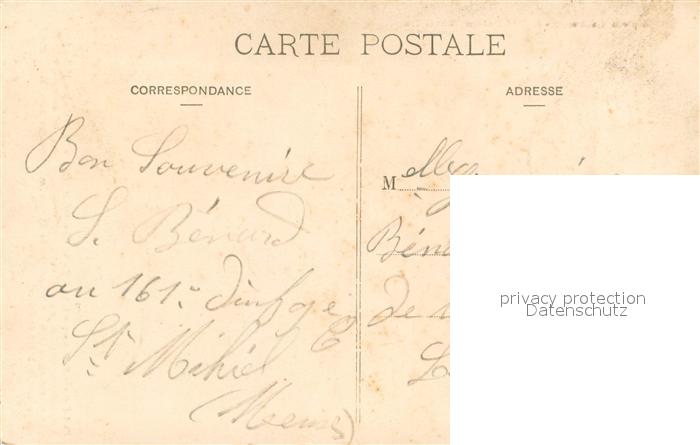 CARTE POSTALE
CORRESPONDANCE
Bon Souvenire
S. Bénard
au 161e
St Mihiel
(Meuse)
ADRESSE
M elle
de
privacy protection
Datenschutz